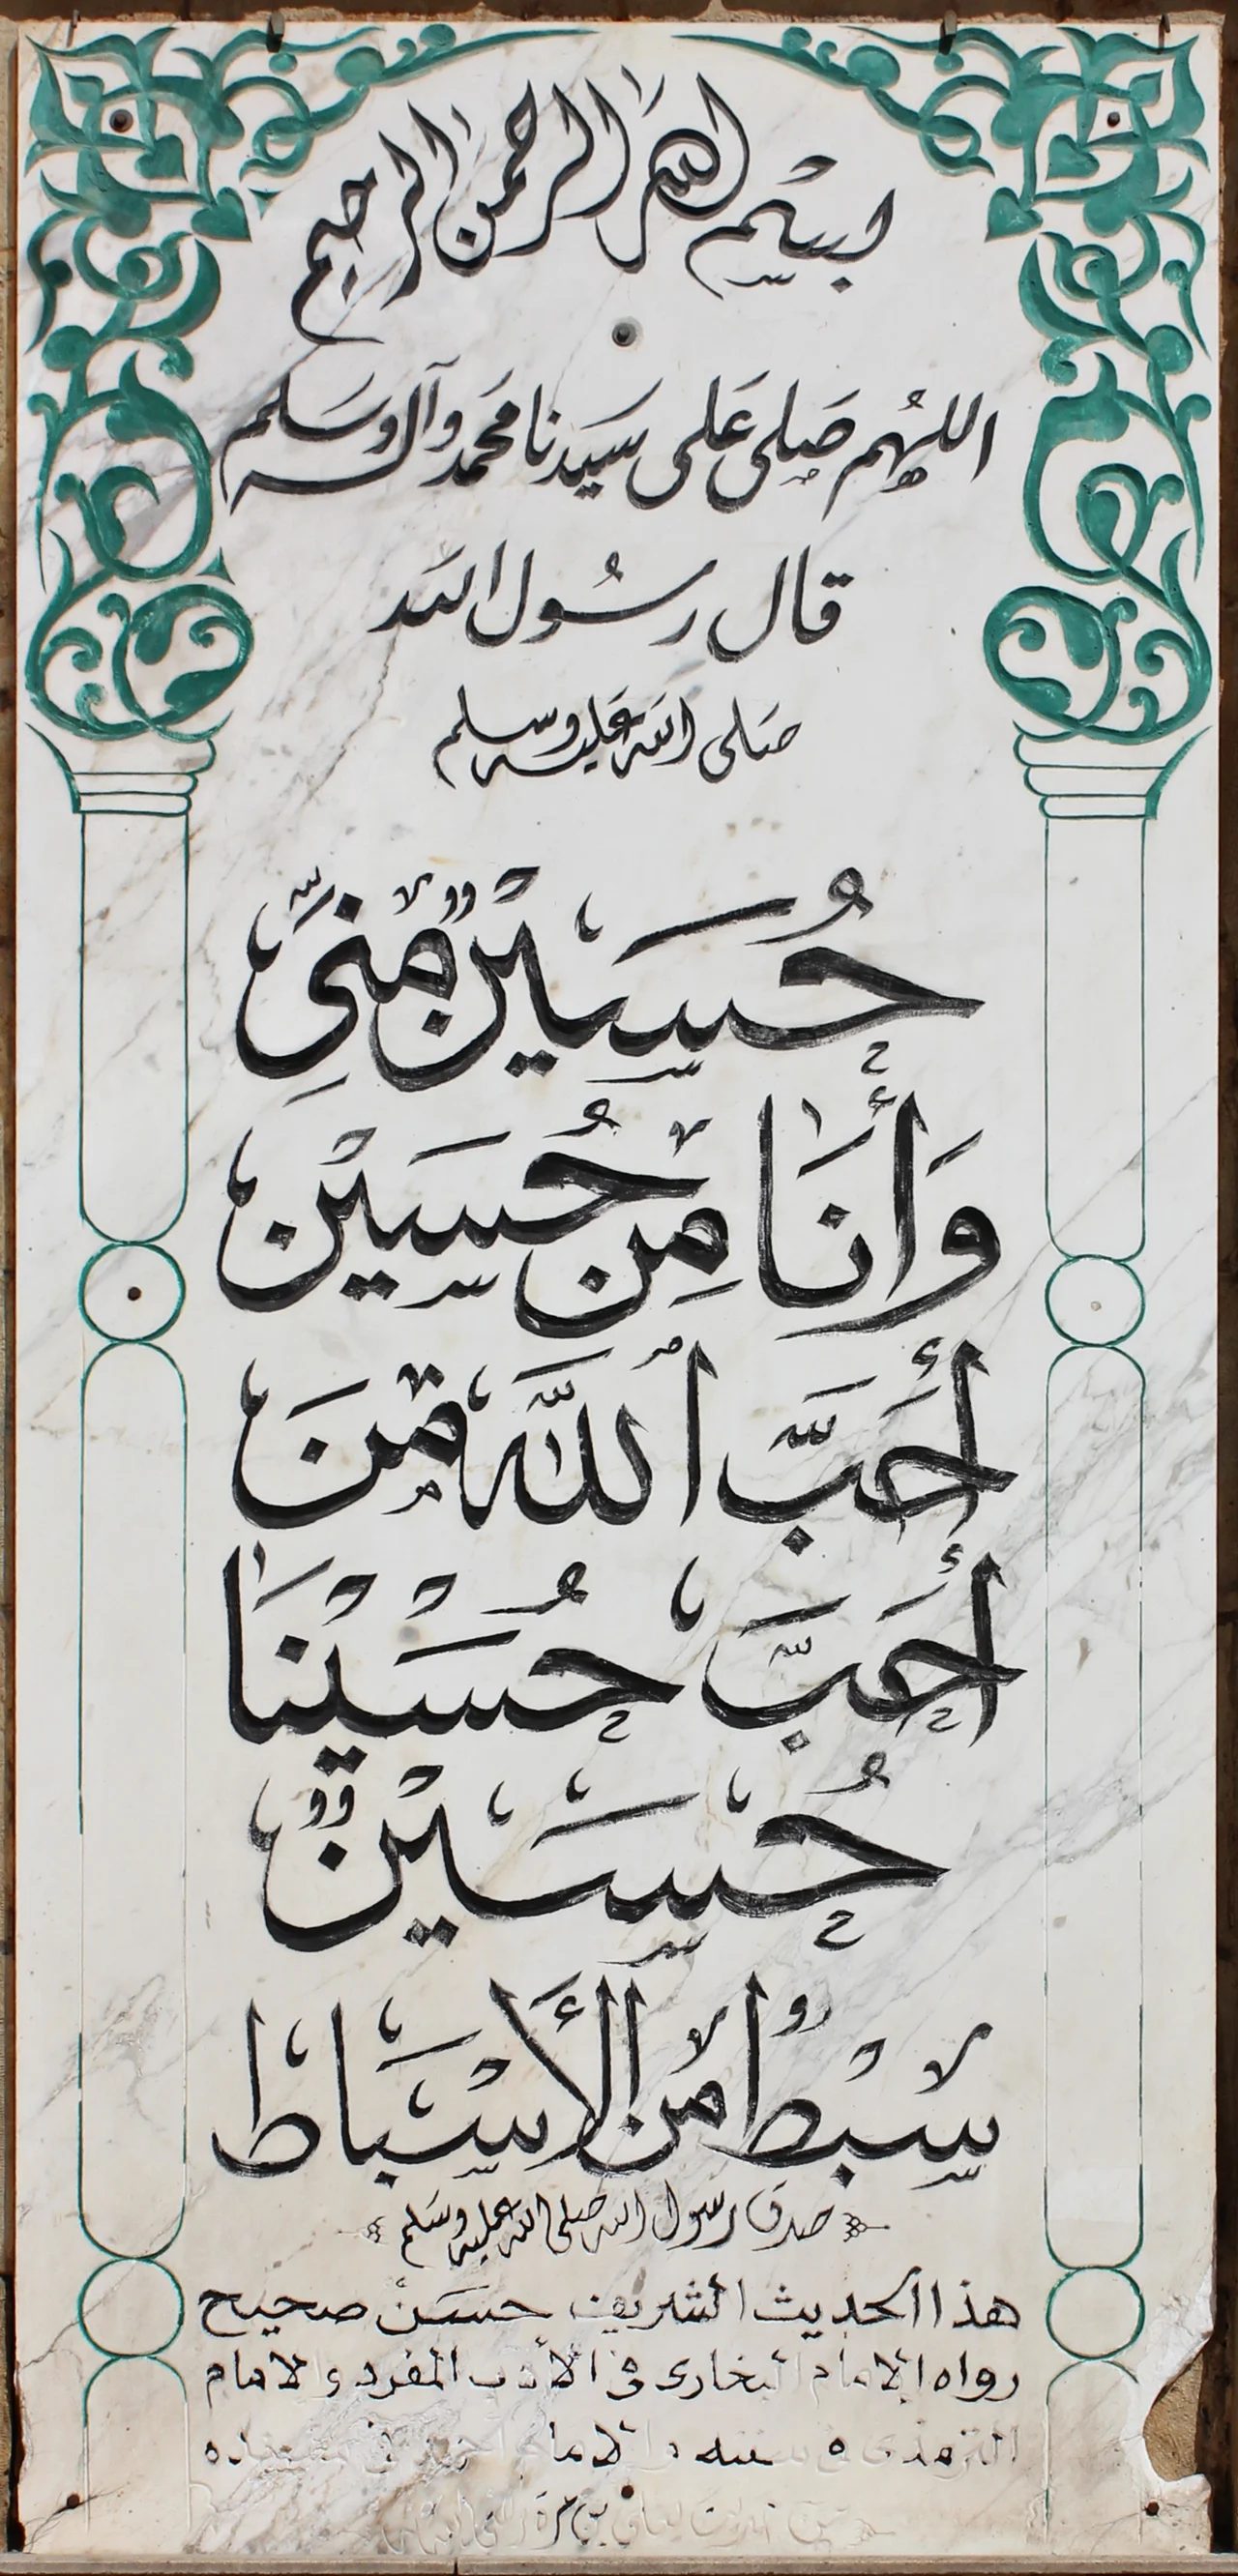 بسم الله الرحمن الرحيم
اللهم صلى على سيدنا محمد وآله وسلم
قال رسول الله
صلى الله عليه وسلم
حُسَيْنٌ مِّنِّي
وَأَنَا مِنْ حُسَيْن
أَحَبَّ ٱللَّهُ مَنَ
أَحَبَّ حُسَيْنَا
حُسَيْنٌ
سِبْطٌ مِّنَ الأَسْبَاط
صدق رسول الله صلى الله عليه وسلم
هذا الحديث الشريف حسن صحيح
رواه الامام البخارى فى الأدب المفرد والامام
الترمذى فى سننه والامام أحمد فى مسنده
بن مرة